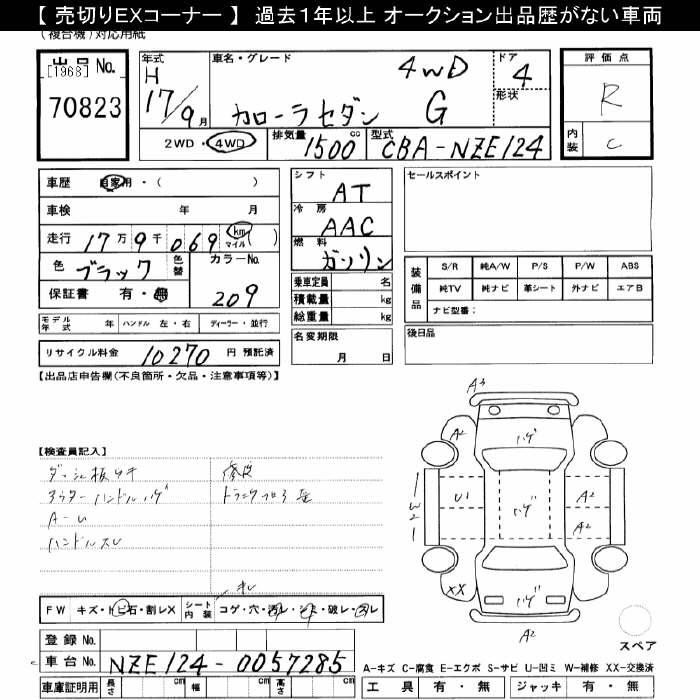 【 売切りEXコーナー 】 過去1年以上 オークション出品歴がない車両
(複合機)対応用紙
出品 No.
[1968]
70823
年式 車名・グレード ドア
H 4WD 4
17/9月 カローラセダン G 形状
2WD・4WD 排気量 1500 cc 型式 CBA-NZE124
評価点
R
内装 C
車歴 自家用・( )
車検 年 月
走行 17万9千069 km マイル ( )
色 ブラック 色替 カラーNo.
保証書 有・無 209
シフト AT
冷房 AAC
燃料 ガソリン
乗車定員 名
積載量 kg
総重量 kg
名変期限
月 日
セールスポイント
装備品 S/R 純A/W P/S P/W ABS
純TV 純ナビ 革シート 外ナビ エアB
ナビ型番:
後日品
モデル年式 年 ハンドル 左・右 ディーラー・並行
リサイクル料金 10270 円 預託済
【出品店申告欄(不良箇所・欠品・注意事項等)】
【検査員記入】
ダッシュ板キキ
アウターハンドルハゲ
A-U
ハンドルスレ
トランクフロア
FW キズ・トビ石・割レX シート内装 コゲ・穴・汚レ・シミ・破レ・切レ
登録 No.
車台 No. NZE124-0057285
車庫証明用 長さ cm 幅 cm 高さ cm
A3
A2 ハゲ
W2 U1 ハゲ A2
A2
XX ハゲ
A2
スペア
A-キズ C-腐食 E-エクボ S-サビ U-凹ミ W-補修 XX-交換済
工具 有・無 ジャッキ 有・無